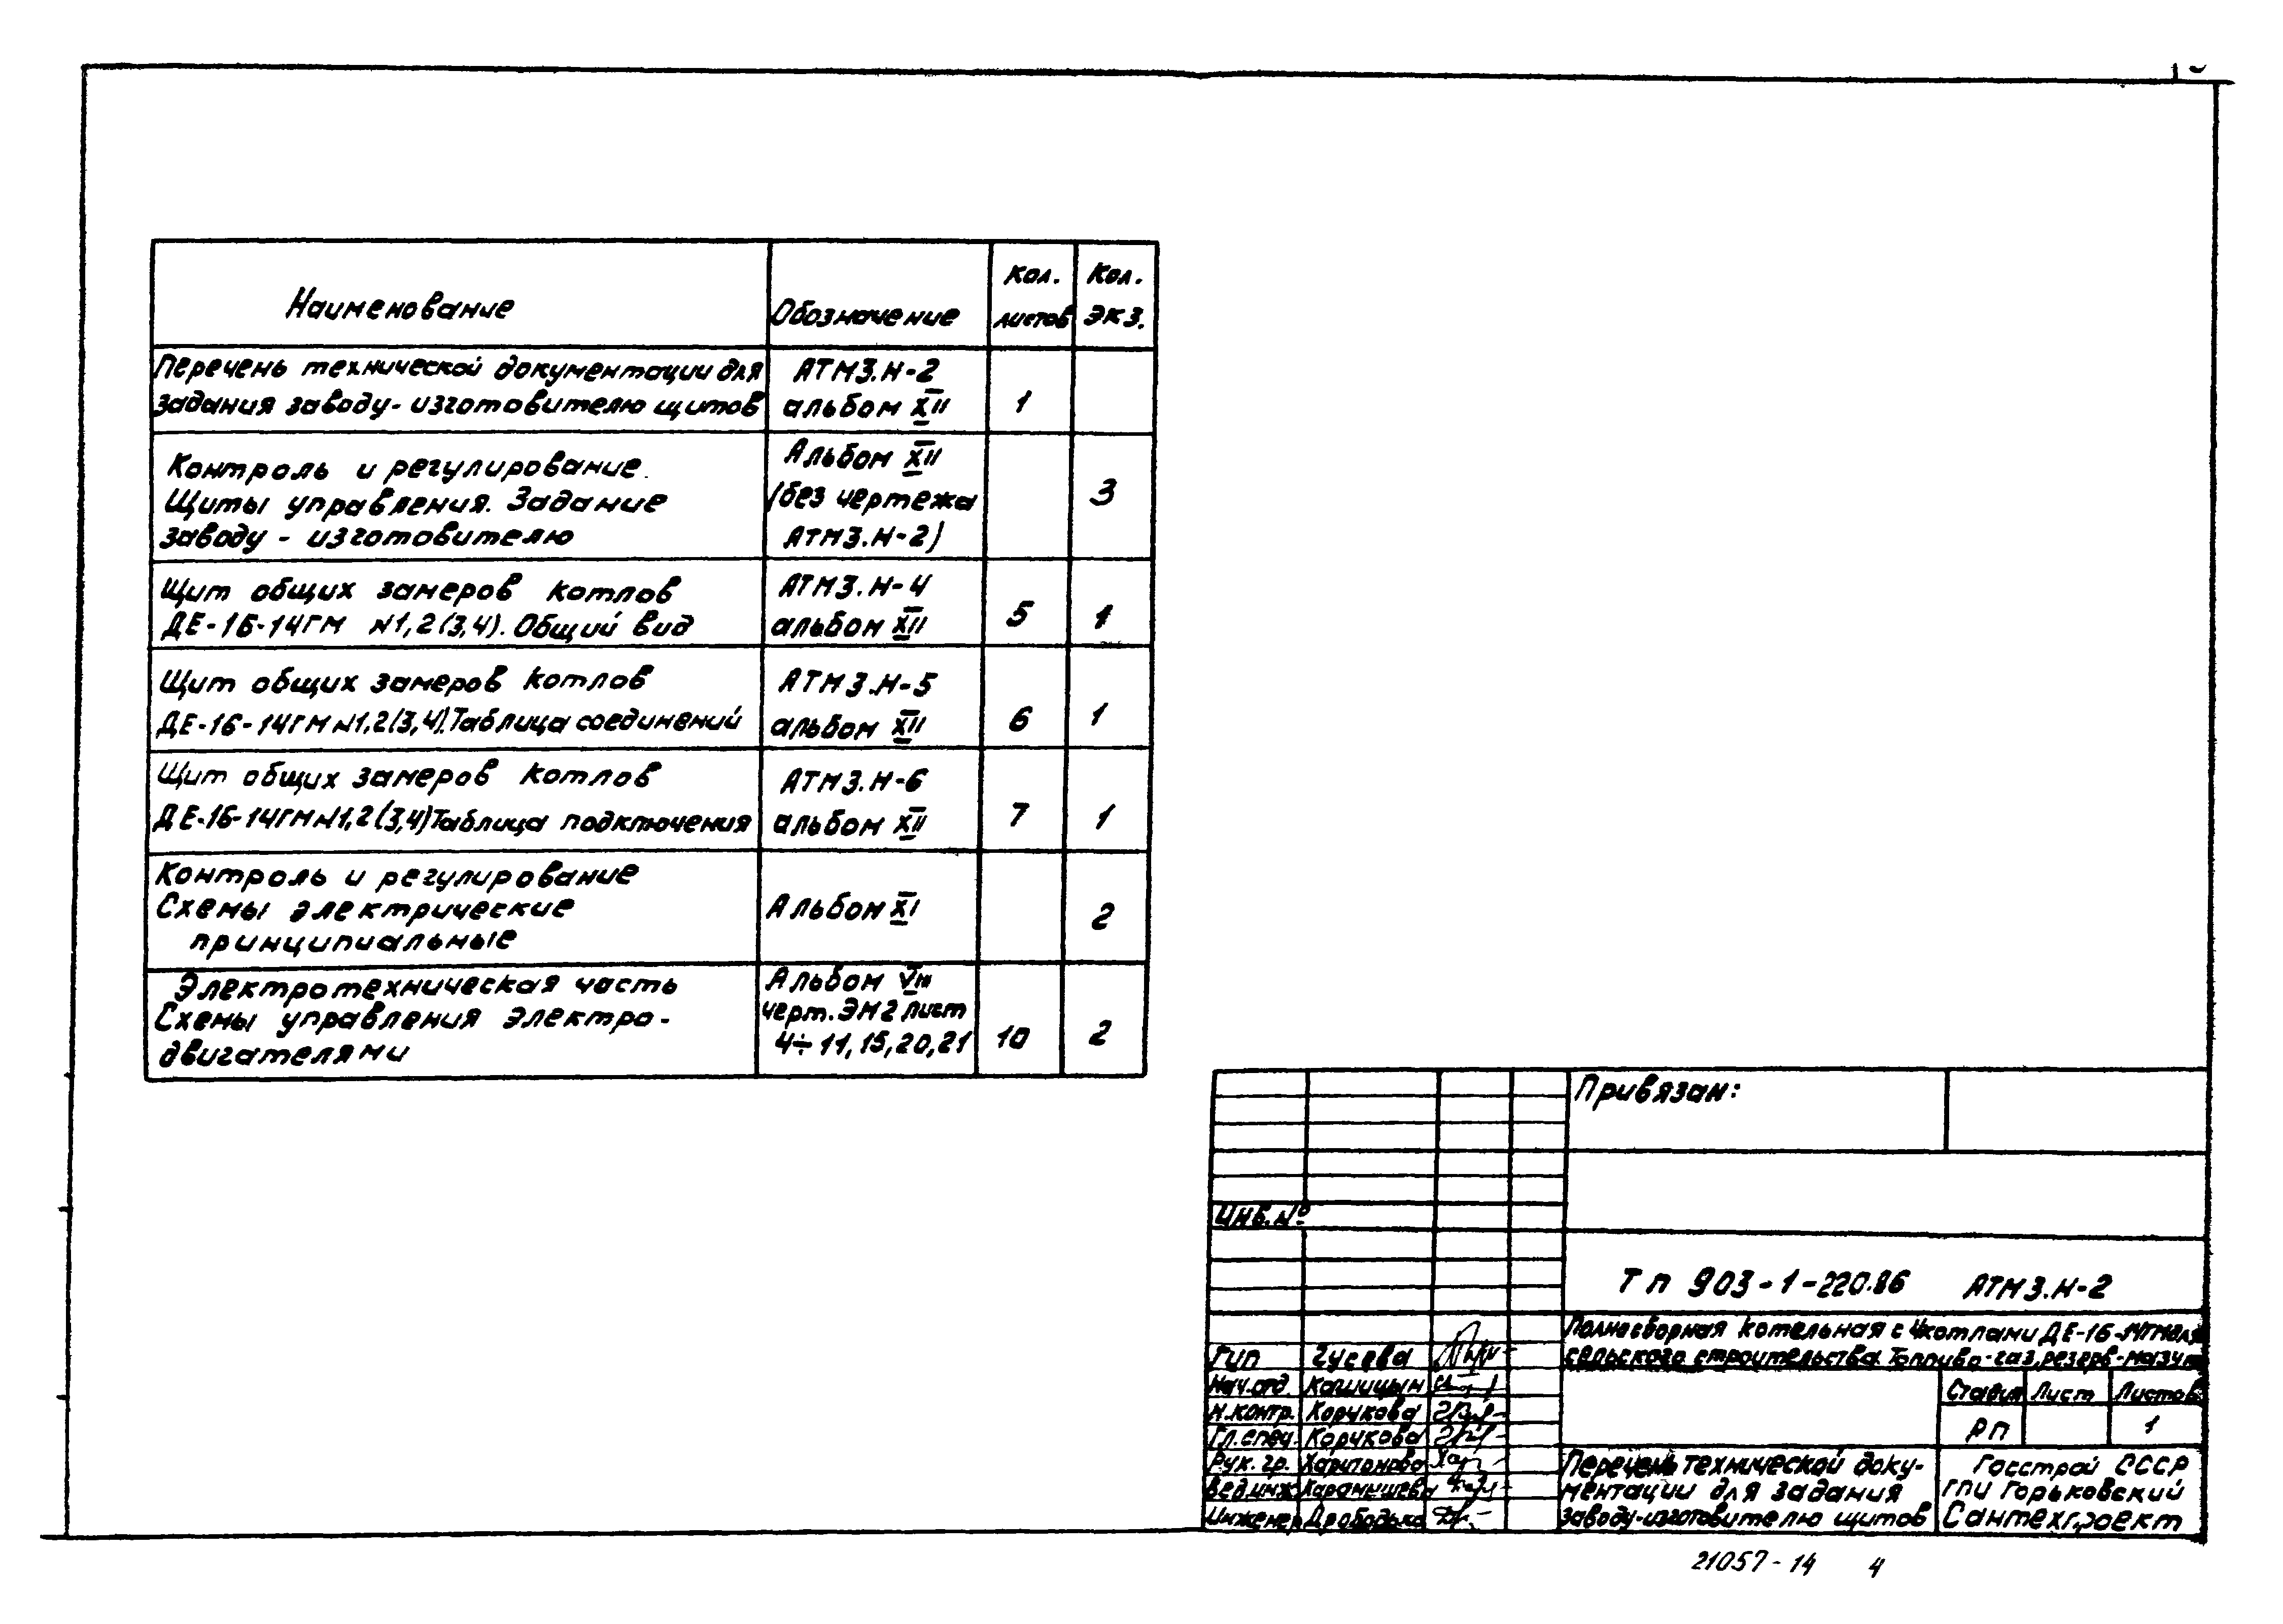 Наименование
Обозначение
Кол. листов
Кол. экз.
Перечень технической документации для
задания заводу-изготовителю щитов
АТМ3.Н-2
альбом XII
1
Контроль и регулирование.
Щиты управления. Задание
заводу - изготовителю
Альбом XII
(без чертежа
АТМ3.Н-2)
3
Щит общих замеров котлов
ДЕ-16-14ГМ N1,2(3,4). Общий вид
АТМ3.Н-4
альбом XII
5
1
Щит общих замеров котлов
ДЕ-16-14ГМ N1,2(3,4). Таблица соединений
АТМ3.Н-5
альбом XII
6
1
Щит общих замеров котлов
ДЕ-16-14ГМ N1,2(3,4) Таблица подключения
АТМ3.Н-6
альбом XII
7
1
Контроль и регулирование
Схемы электрические
принципиальные
Альбом XI
2
Электротехническая часть
Схемы управления электро-
двигателями
Альбом VIII
черт. ЭМ2 лист
4÷11, 15, 20, 21
10
2
Привязан:
Инв. №
ТП 903-1-220.86 АТМ3.Н-2
Полносборная котельная с 4 котлами ДЕ-16-14ГМ для
сельского строительства. Топливо-газ, резерв-мазут
Гип Гусева
Нач.отд. Кашицын
Н.контр. Корчкова
Гл.спец. Корчкова
Рук. гр. Харитонова
Вед.инж Карамышева
Инженер Дрободько
Стадия Лист Листов
РП 1
Перечень технической доку-
ментации для задания
заводу-изготовителю щитов
Госстрой СССР
ГПИ Горьковский
Сантехпроект
21057-14 4